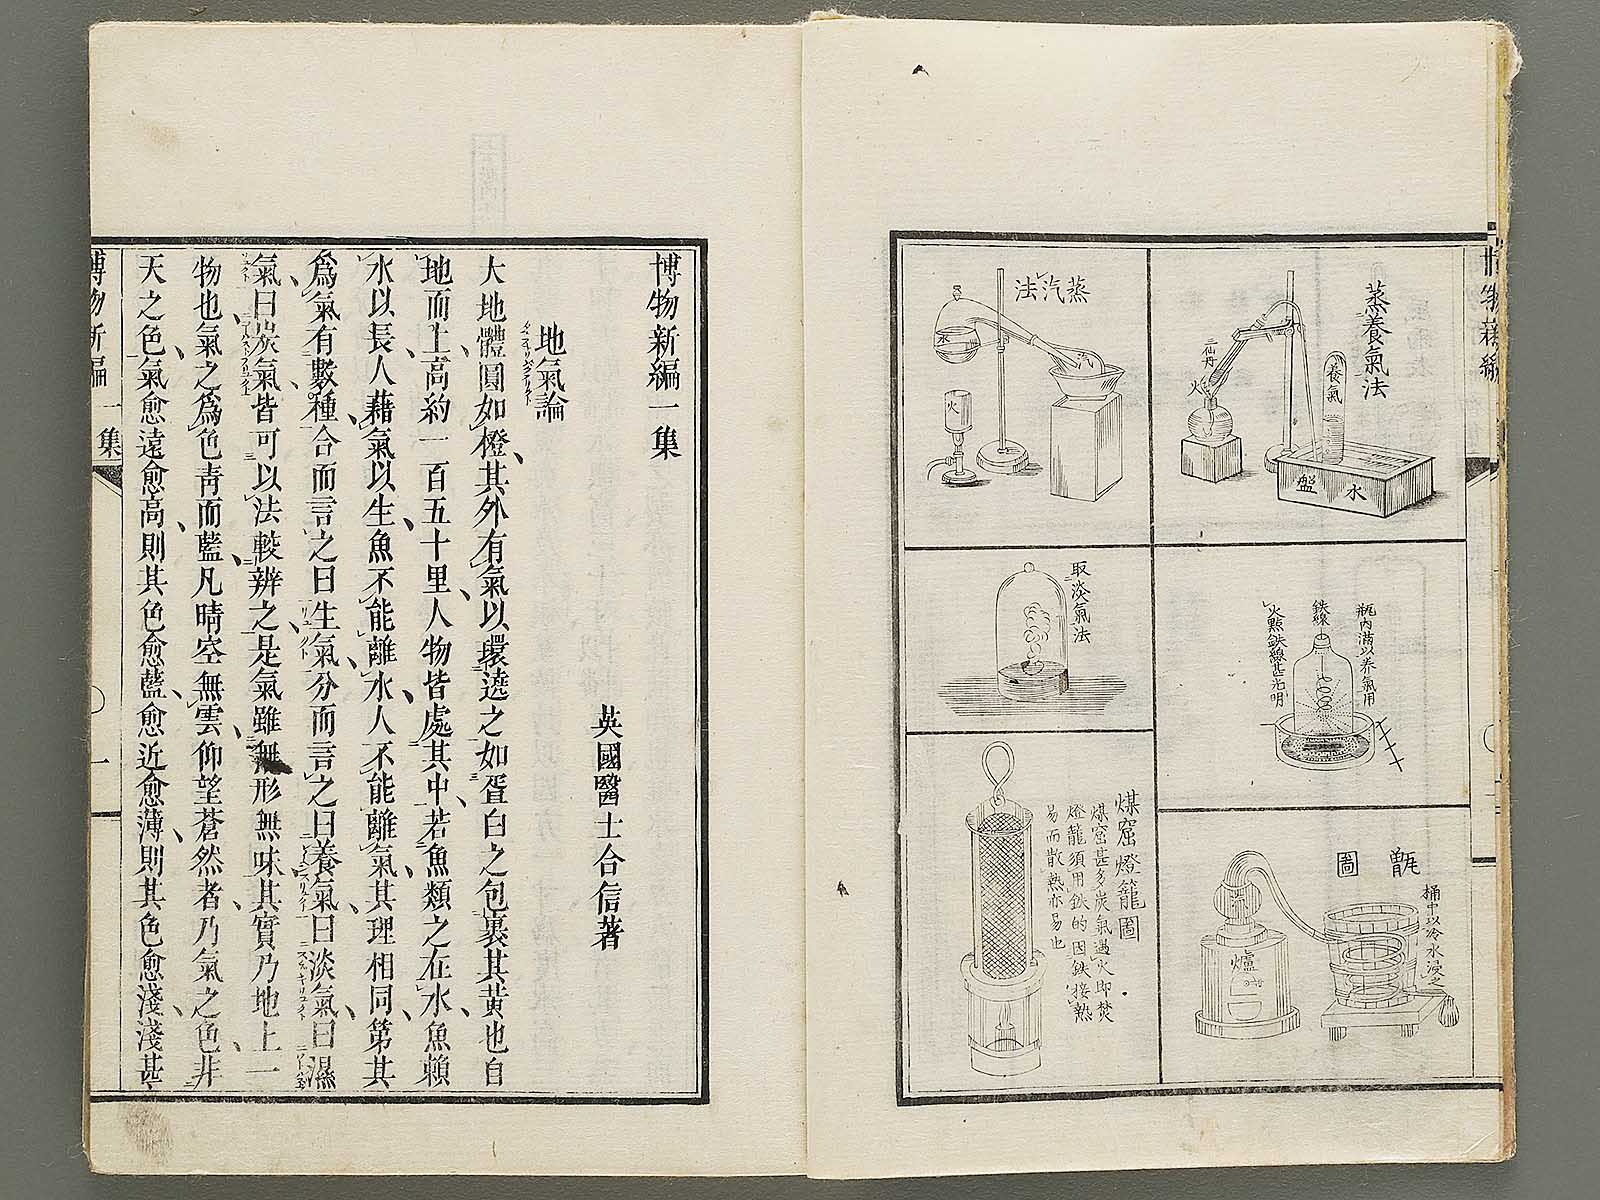 蒸養氣法
三仙丹
火
養氣
水盤
蒸汽法
水
汽
火
瓶内滿以养氣用
鉄線
火㸃鉄線甚光明
取淡氣法
甑圖
桶中以冷水浸之
爐
煤窟燈籠圖
煤窟甚多炭氣遇火即焚
燈籠須用鉄的因鉄接熱
易而散熱亦易也
博物新編一集
英國醫士合信著
地氣論
大地體圓如橙其外有氣以環遶之如蛋白之包裹其黄也自
地而上高約一百五十里人物皆處其中若魚類之在水魚賴
水以長人藉氣以生魚不能離水人不能離氣其理相同第其
爲氣有數種合而言之曰生氣分而言之曰養氣曰淡氣曰濕
氣曰炭氣皆可以法較辨之是氣雖無形無味其實乃地上一
物也氣之爲色青而藍凡晴空無雲仰望蒼然者乃氣之色非
天之色氣愈遠愈高則其色愈藍愈近愈薄則其色愈淺淺甚
博物新編一集
一